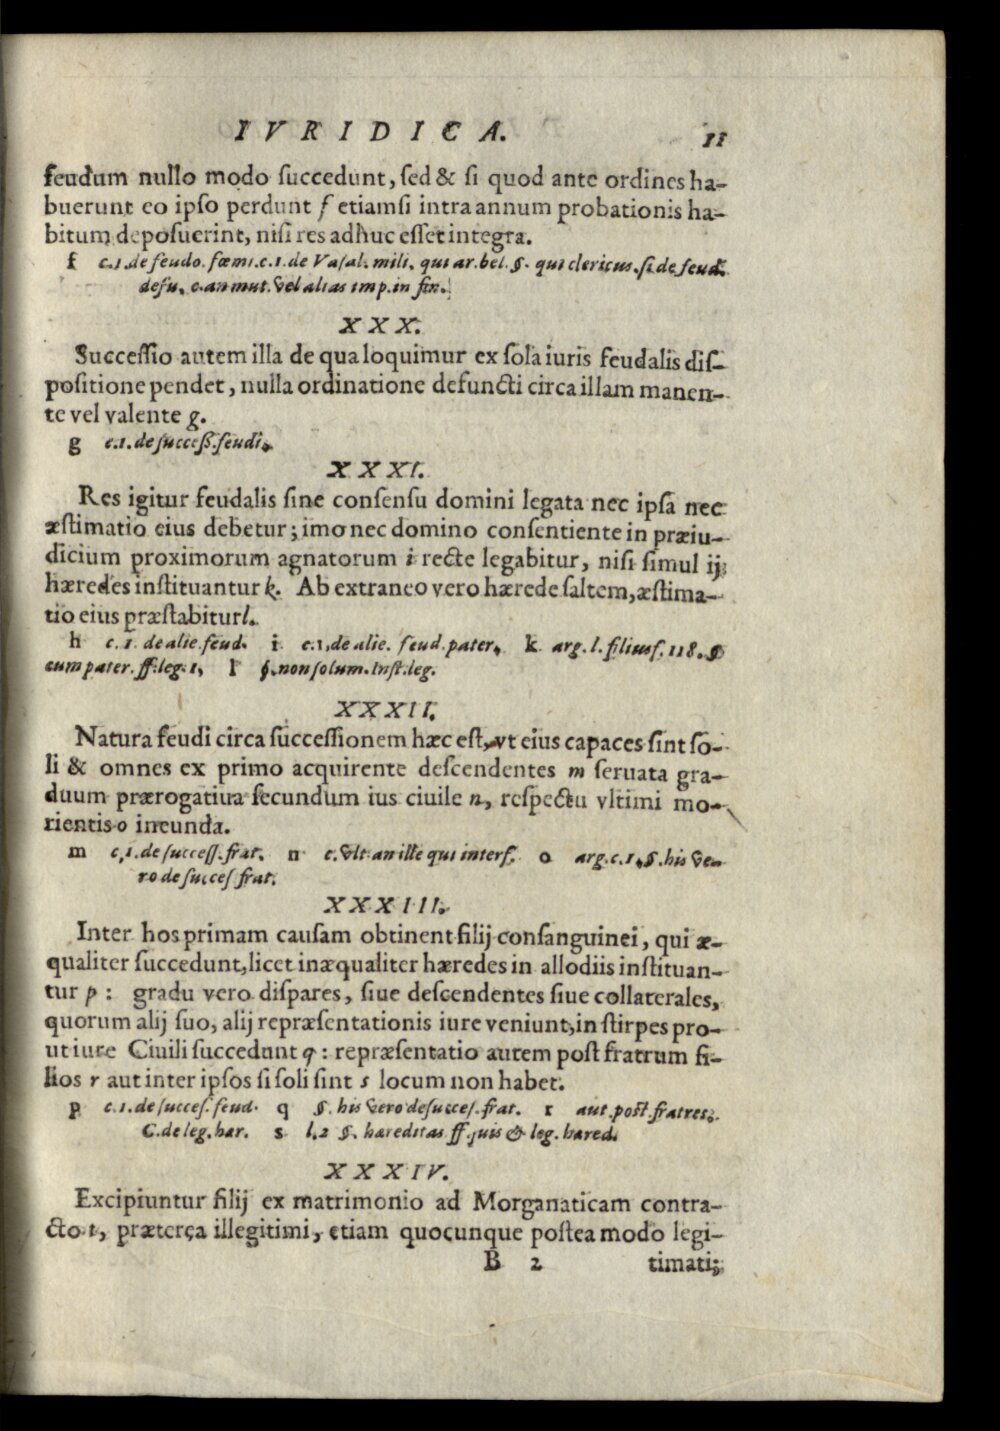 IVRIDICA. 11
feudum nullo modo ſuccedunt, ſed & ſi quod ante ordines ha-
buerunt eo ipſo perdunt f etiamſi intra annum probationis ha-
bitum depoſuerint, niſi res adhuc eſſet integra.
f c.1. de feudo. fœmi. c.1. de Vaſal. mili. qui ar. bel. §. qui clericus. ſi. de feud.
defu. c. an mut. vel alias imp. in fin.
XXX.
Succeſſio autem illa de qua loquimur ex ſola iuris feudalis diſ-
poſitione pendet, nulla ordinatione defuncti circa illam manen-
te vel valente g.
g c.1. de ſucceß. feudi.
XXXI.
Res igitur feudalis ſine conſenſu domini legata nec ipſa nec
æſtimatio eius debetur; imo nec domino conſentiente in præiu-
dicium proximorum agnatorum i recte legabitur, niſi ſimul ij
hæredes inſtituantur k. Ab extraneo vero hærede ſaltem, æſtima-
tio eius præſtabitur l.
h c. 1. de alie. feud. i c.1. de alie. feud. pater. k arg. l. filiusf. 118. §
cum pater. ff. leg. 1, l §. non ſolum. Inſt. leg.
XXXII.
Natura feudi circa ſucceſſionem hæc eſt, vt eius capaces ſint ſo-
li & omnes ex primo acquirente deſcendentes m ſeruata gra-
duum prærogatiua ſecundum ius ciuile n, reſpectu vltimi mo-
rientis o ineunda.
m c.1. de ſucceſſ. frat. n c. vlt. an ille qui interf. o arg. c. 1. §. his ve-
ro de ſucceſ frat.
XXXIII.
Inter hos primam cauſam obtinent filij conſanguinei, qui æ-
qualiter ſuccedunt, licet inæqualiter hæredes in allodiis inſtituan-
tur p: gradu vero diſpares, ſiue deſcendentes ſiue collaterales,
quorum alij ſuo, alij repræſentationis iure veniunt, in ſtirpes pro-
ut iure Ciuili ſuccedunt q: repræſentatio autem poſt fratrum fi-
lios r aut inter ipſos ſi ſoli ſint s locum non habet.
p c. 1. de ſucceſ. feud. q §. his vero de ſucceſ. frat. r aut. poſt fratres.
C. de leg. hær. s l. 2 §. hæreditas ff. ſuis & leg. hæred.
XXXIV.
Excipiuntur filij ex matrimonio ad Morganaticam contra-
cto t, præterea illegitimi, etiam quocunque poſtea modo legi-
B 2 timati;